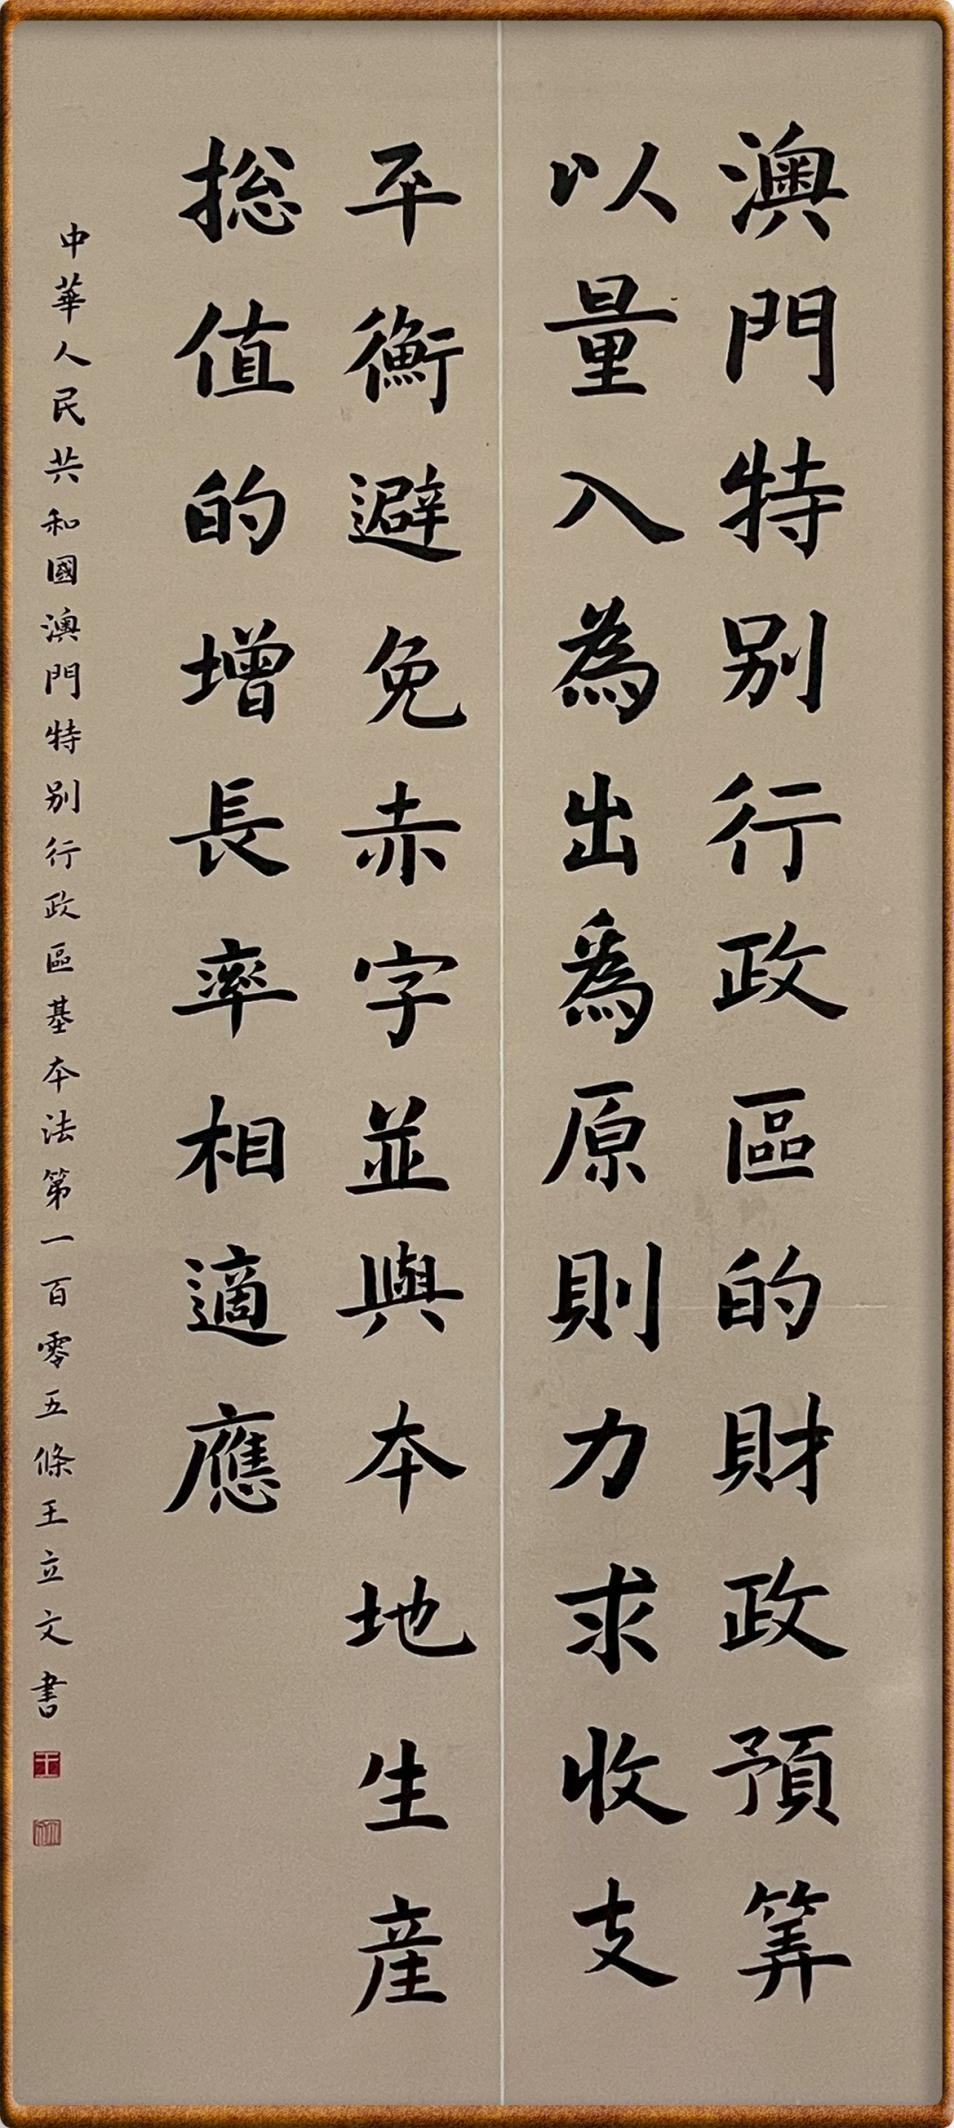 澳門特别行政區的財政預筭
以量入為出爲原則力求收支
平衡避免赤字並與本地生産
摠值的增長率相適應
中華人民共和國澳門特别行政區基本法第一百零五條王立文書
王